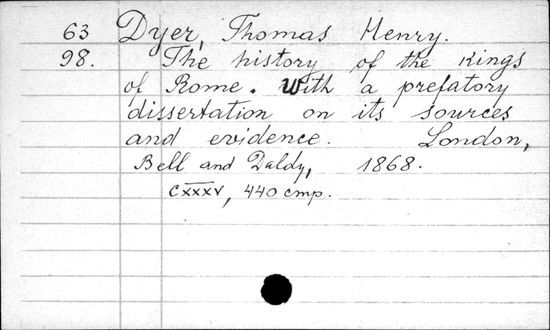 63 Dyer, Thomas Henry.
98. The history of the kings
of Rome. With a prefatory
dissertation on its sources
and evidence. London,
Bell and Daldy, 1868.
cxxxv, 440 cmp.